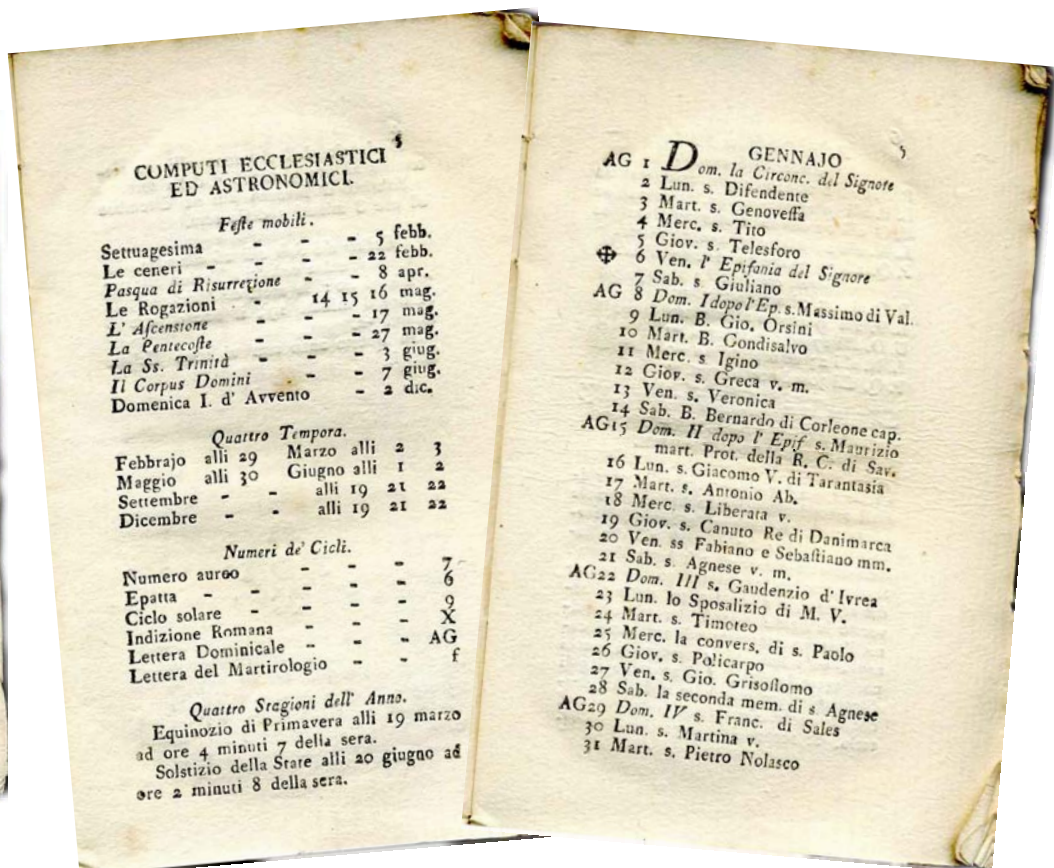 5
COMPUTI ECCLESIASTICI
ED ASTRONOMICI.
Feſte mobili.
Settuagesima - - - 5 febb.
Le ceneri - - - 22 febb.
Pasqua di Risurrezione - - 8 apr.
Le Rogazioni - 14 15 16 mag.
L' Aſcensione - - - 17 mag.
La Pentecoſte - - - 27 mag.
La Ss. Trinità - - - 3 giug.
Il Corpus Domini - - 7 giug.
Domenica I. d' Avvento - 2 dic.
Quattro Tempora.
Febbrajo alli 29 Marzo alli 2 3
Maggio alli 30 Giugno alli 1 2
Settembre - - alli 19 21 22
Dicembre - - alli 19 21 22
Numeri de' Cicli.
Numero aureo - - - 7
Epatta - - - - - 6
Ciclo solare - - - - 9
Indizione Romana - - - X
Lettera Dominicale - - - AG
Lettera del Martirologio - - f
Quattro Stagioni dell' Anno.
Equinozio di Primavera alli 19 marzo
ad ore 4 minuti 7 della sera.
Solstizio della State alli 20 giugno ad
ore 2 minuti 8 della sera.
5
GENNAJO
AG 1 Dom. la Circonc. del Signore
2 Lun. s. Difendente
3 Mart. s. Genoveffa
4 Merc. s. Tito
5 Giov. s. Telesforo
✠ 6 Ven. l' Epifania del Signore
7 Sab. s. Giuliano
AG 8 Dom. I dopo l'Ep. s. Massimo di Val.
9 Lun. B. Gio. Orsini
10 Mart. B. Gondisalvo
11 Merc. s Igino
12 Giov. s. Greca v. m.
13 Ven. s. Veronica
14 Sab. B. Bernardo di Corleone cap.
AG15 Dom. II dopo l' Epif s. Maurizio
mart. Prot. della R. C. di Sav.
16 Lun. s. Giacomo V. di Tarantasia
17 Mart. s. Antonio Ab.
18 Merc. s. Liberata v.
19 Giov. s. Canuto Re di Danimarca
20 Ven. ss Fabiano e Sebaſtiano mm.
21 Sab. s. Agnese v. m.
AG22 Dom. III s. Gaudenzio d' Ivrea
23 Lun. lo Sposalizio di M. V.
24 Mart. s. Timoteo
25 Merc. la convers. di s. Paolo
26 Giov. s. Policarpo
27 Ven. s. Gio. Grisoſtomo
28 Sab. la seconda mem. di s. Agnese
AG29 Dom. IV s. Franc. di Sales
30 Lun. s. Martina v.
31 Mart. s. Pietro Nolasco